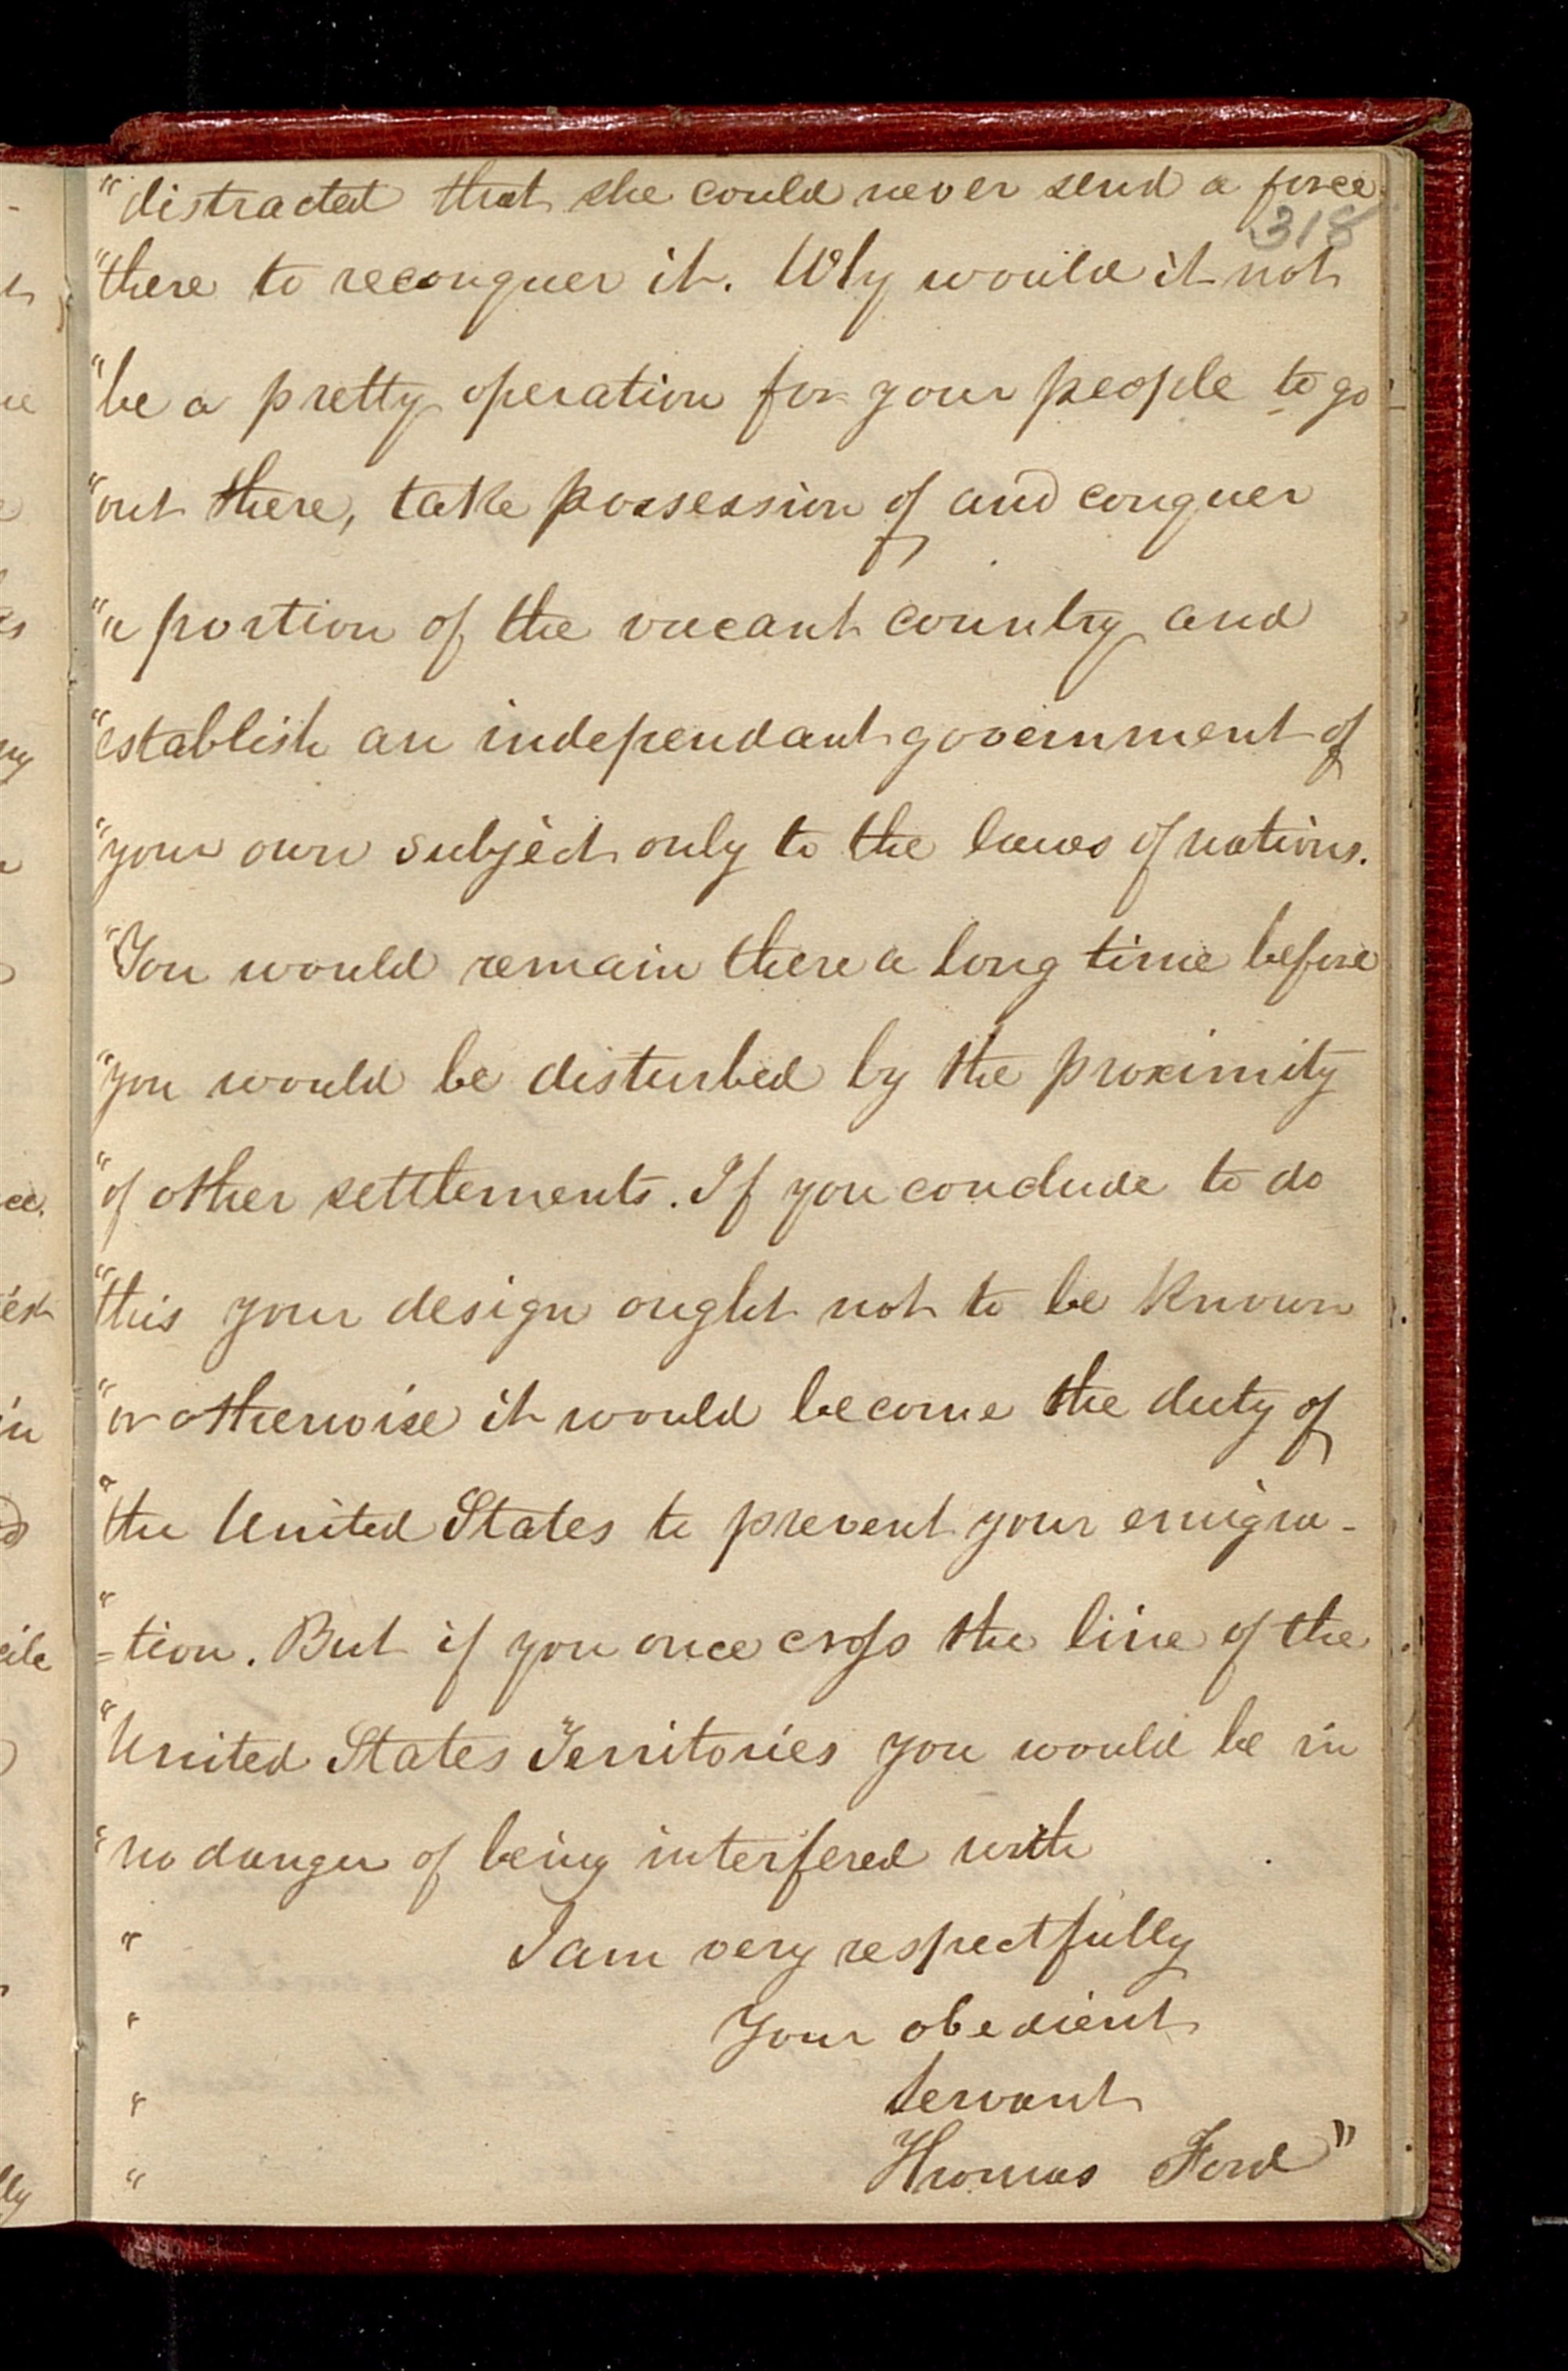 "distracted that she could never send a force
318
"there to reconquer it. Why would it not
"be a pretty operation for your people to go
"out there, take possession of and conquer
"a portion of the vacant country and
"establish an independant government of
"your own subject only to the laws of nations.
"You would remain there a long time before
"you would be disturbed by the proximity
"of other settlements. If you conclude to do
"this your design ought not to be known
"or otherwise it would become the duty of
"the United States to prevent your emigra-
"=tion. But if you once cross the line of the
"United States Territories you would be in
"no danger of being interfered with
" I am very respectfully
" Your obedient
" servant
" Thomas Ford"